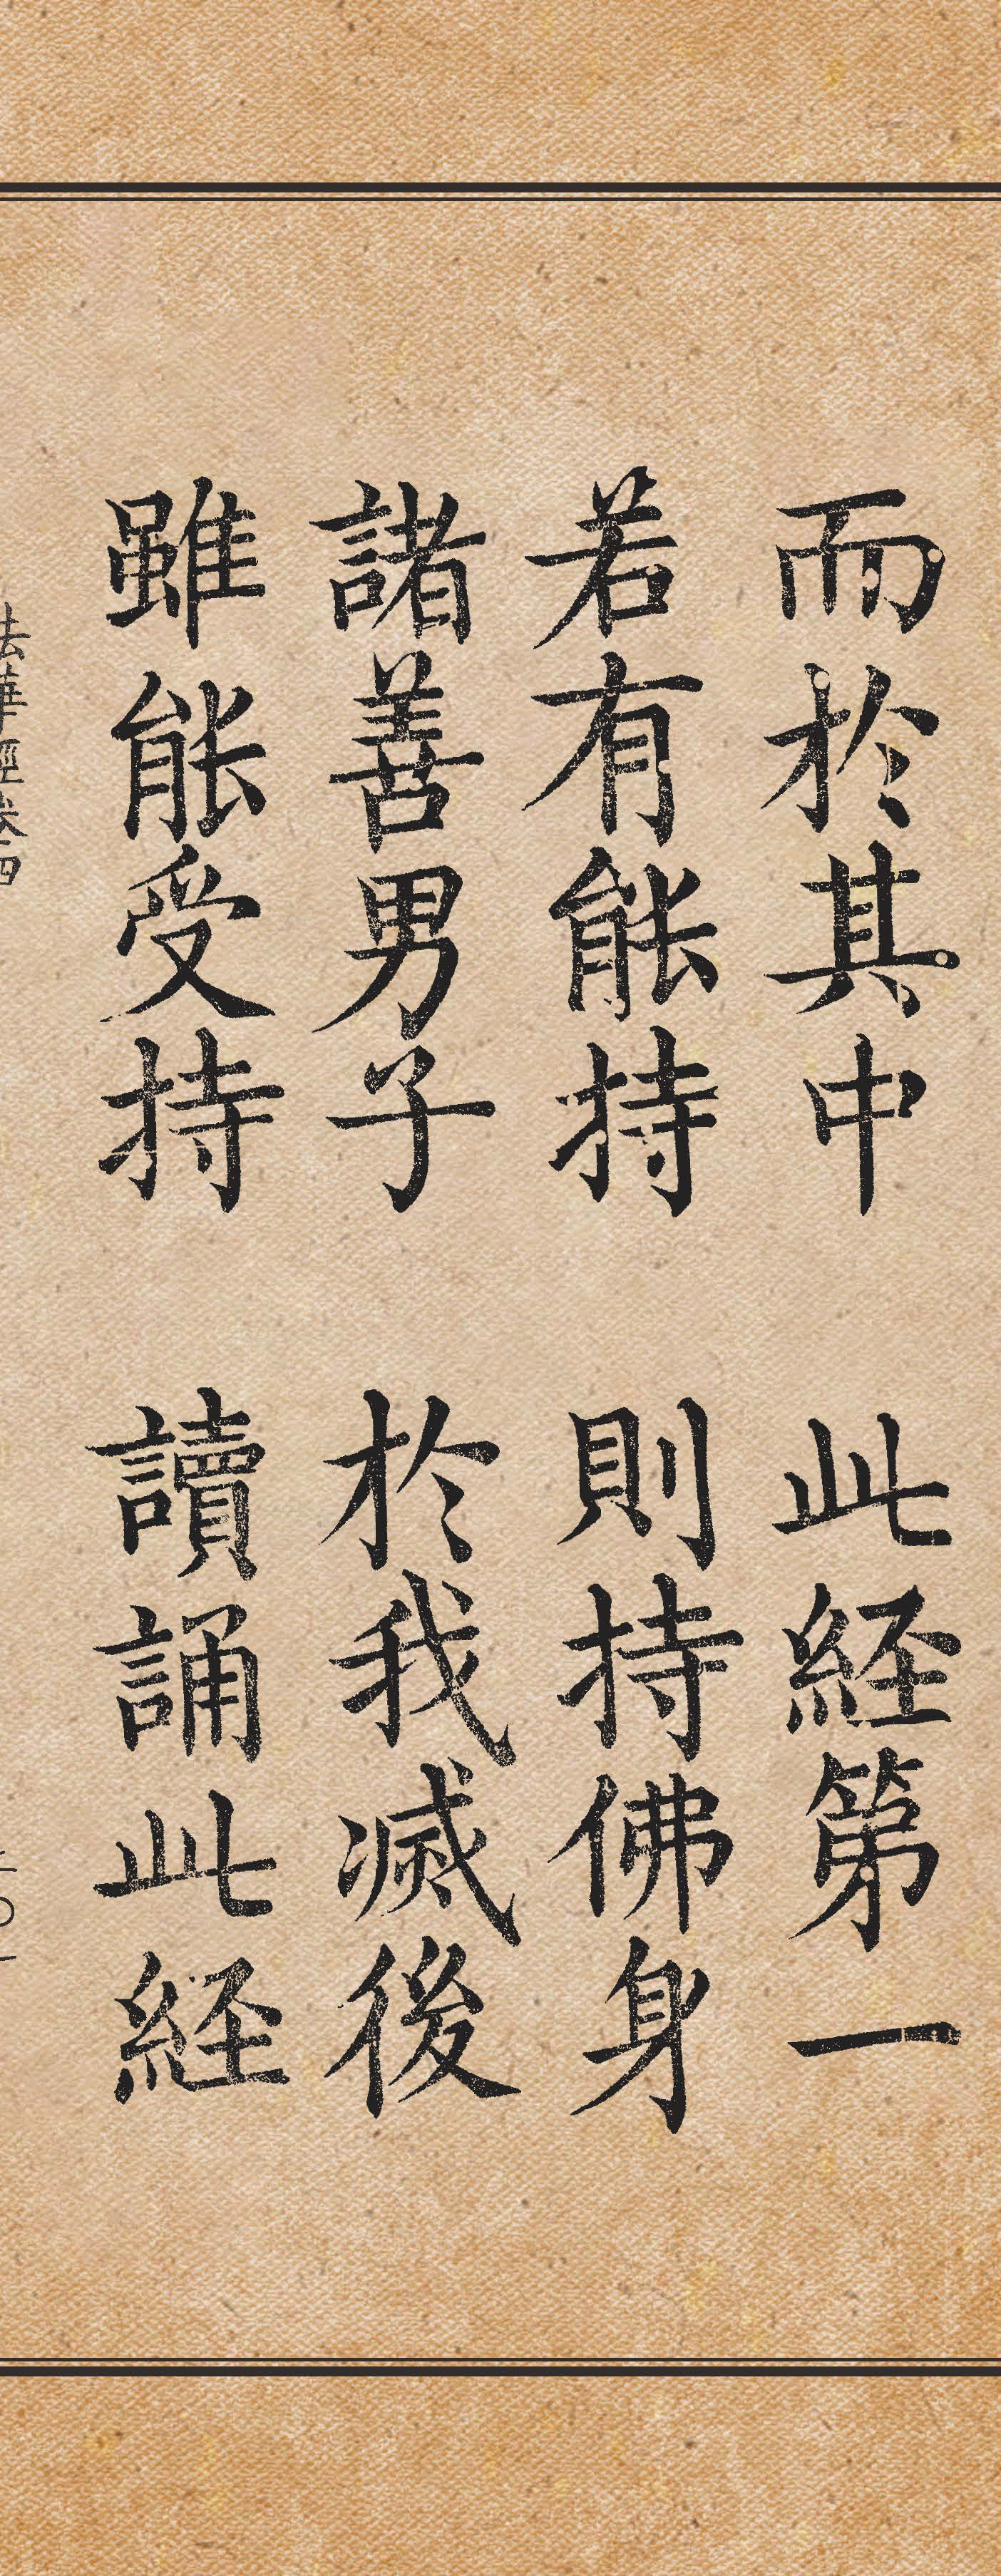 而於其中 此経第一
若有能持 則持佛身
諸善男子 於我滅後
雖能受持 讀誦此経
法華經卷四